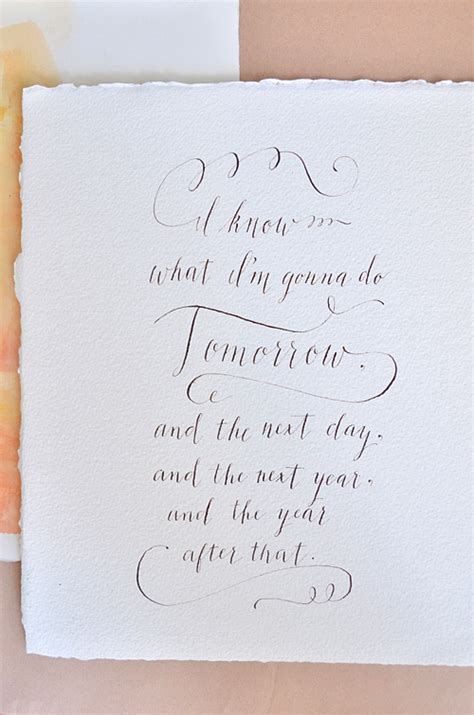 I know
what I'm gonna do
Tomorrow,
and the next day,
and the next year,
and the year
after that.